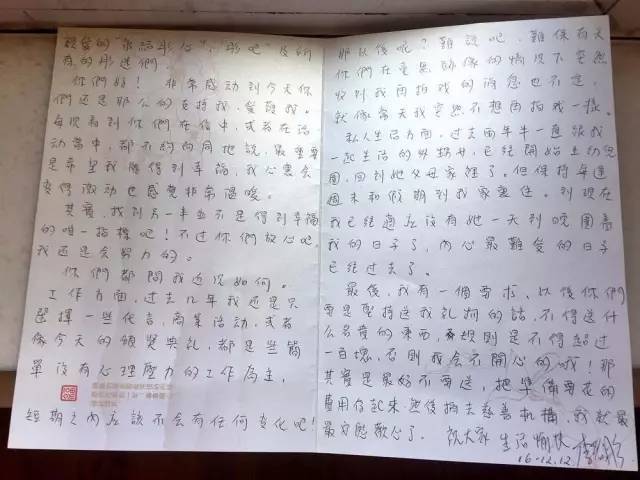 親愛的"永結彤心", "彤吧"及所
有的彤迷們
你們好! 非常感動到今天你
們還是那么的支持我, 愛護我。
每次看到你們在信中, 或者在活
動當中, 都不約而同地說, 最重要
是希望我獲得到幸福, 我心裏會
覺得激動也感覺非常溫暖。
其實, 找到另一半並不是得到幸福
的唯一指標吧! 不过你們放心吧
我还是会努力的。
你們都問我近況如何。
工作方面, 过去几年我还是只
選擇一些代言, 商業活動, 或者
像今天的頒獎典礼, 都是些簡
單沒有心理壓力的工作為主,
短期之內应該不会有任何变化吧!
那以後呢? 難說吧, 難保有天
你們在毫無防備的情況下突然
收到我再拍戏的消息也不定,
就像當天我突然不想再拍戏一樣。
私人生活方面, 过去两年半一直跟我
一起生活的外甥女, 已経開始上幼兒
園, 回到她父母家住了。但保持每逢
週末和假期到我家裏住。到現在
我已経適应沒有她一天到晚圍着
我的日子了, 內心最難受的日子
已経过去了。
最後, 我有一個要求, 以後你們
要是堅持送我礼物的話, 不得送什
么名貴的東西, 規則是不得超过
一百塊, 否則我会不開心的哦! 那
其實是最好不要送, 把準備要花的
費用存起來然後捐去慈善机構, 我就最
最安慰歡心了。祝大家生活愉快
16.12.12